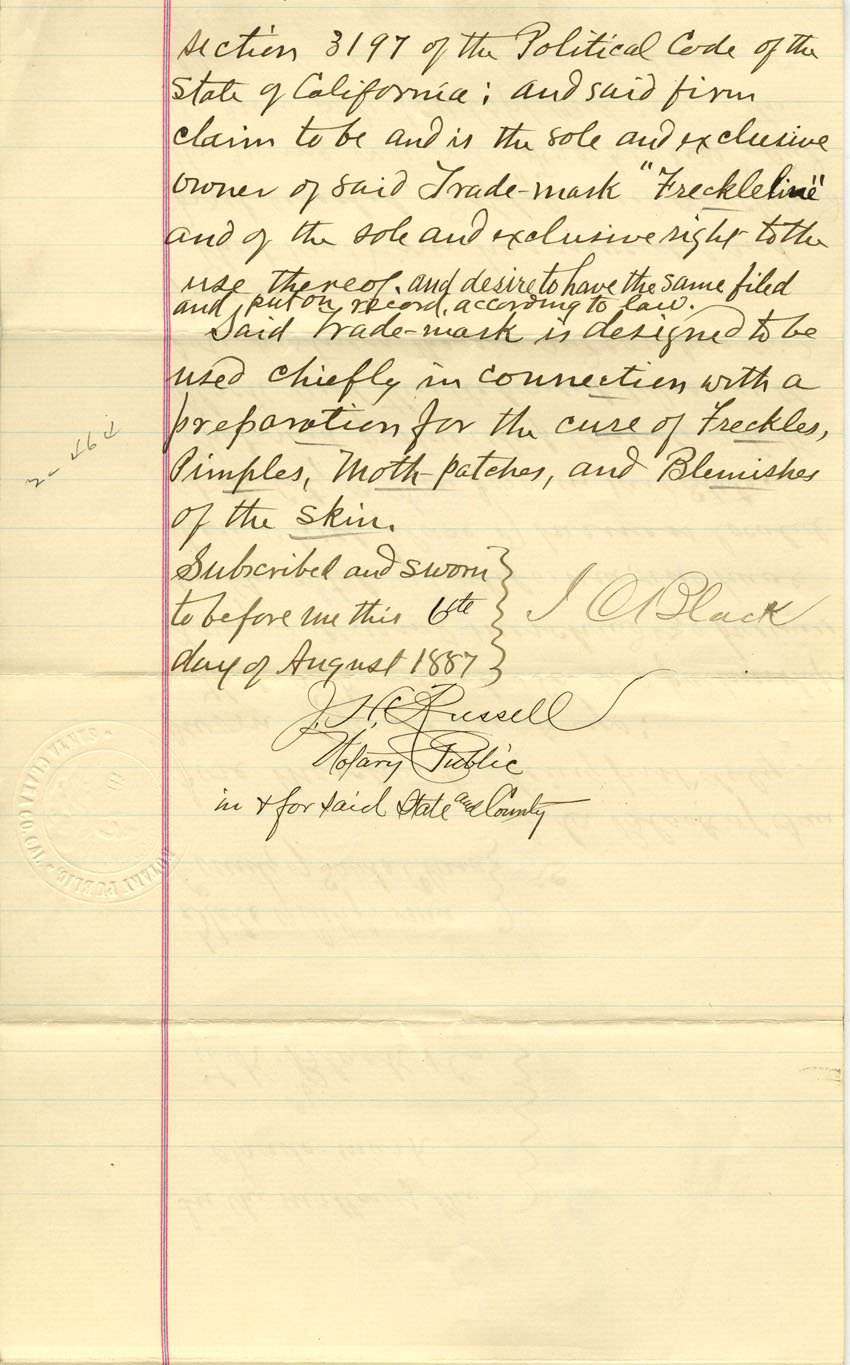 section 3197 of the Political Code of the
State of California; and said firm
claim to be and is the sole and exclusive
owner of said Trade-mark "Freckleline"
and of the sole and exclusive right to the
use thereof. and desire to have the same filed
and put on record, according to law.
Said Trade-mark is designed to be
used chiefly in connection with a
preparation for the cure of Freckles,
Pimples, Moth-patches, and Blemishes
of the skin.
Subscribed and sworn
to before me this 6th
day of August 1887
Black
J. H. Russell
Notary Public
in & for said State and County
SANTA CLARA CO. CAL.
NOTARY PUBLIC